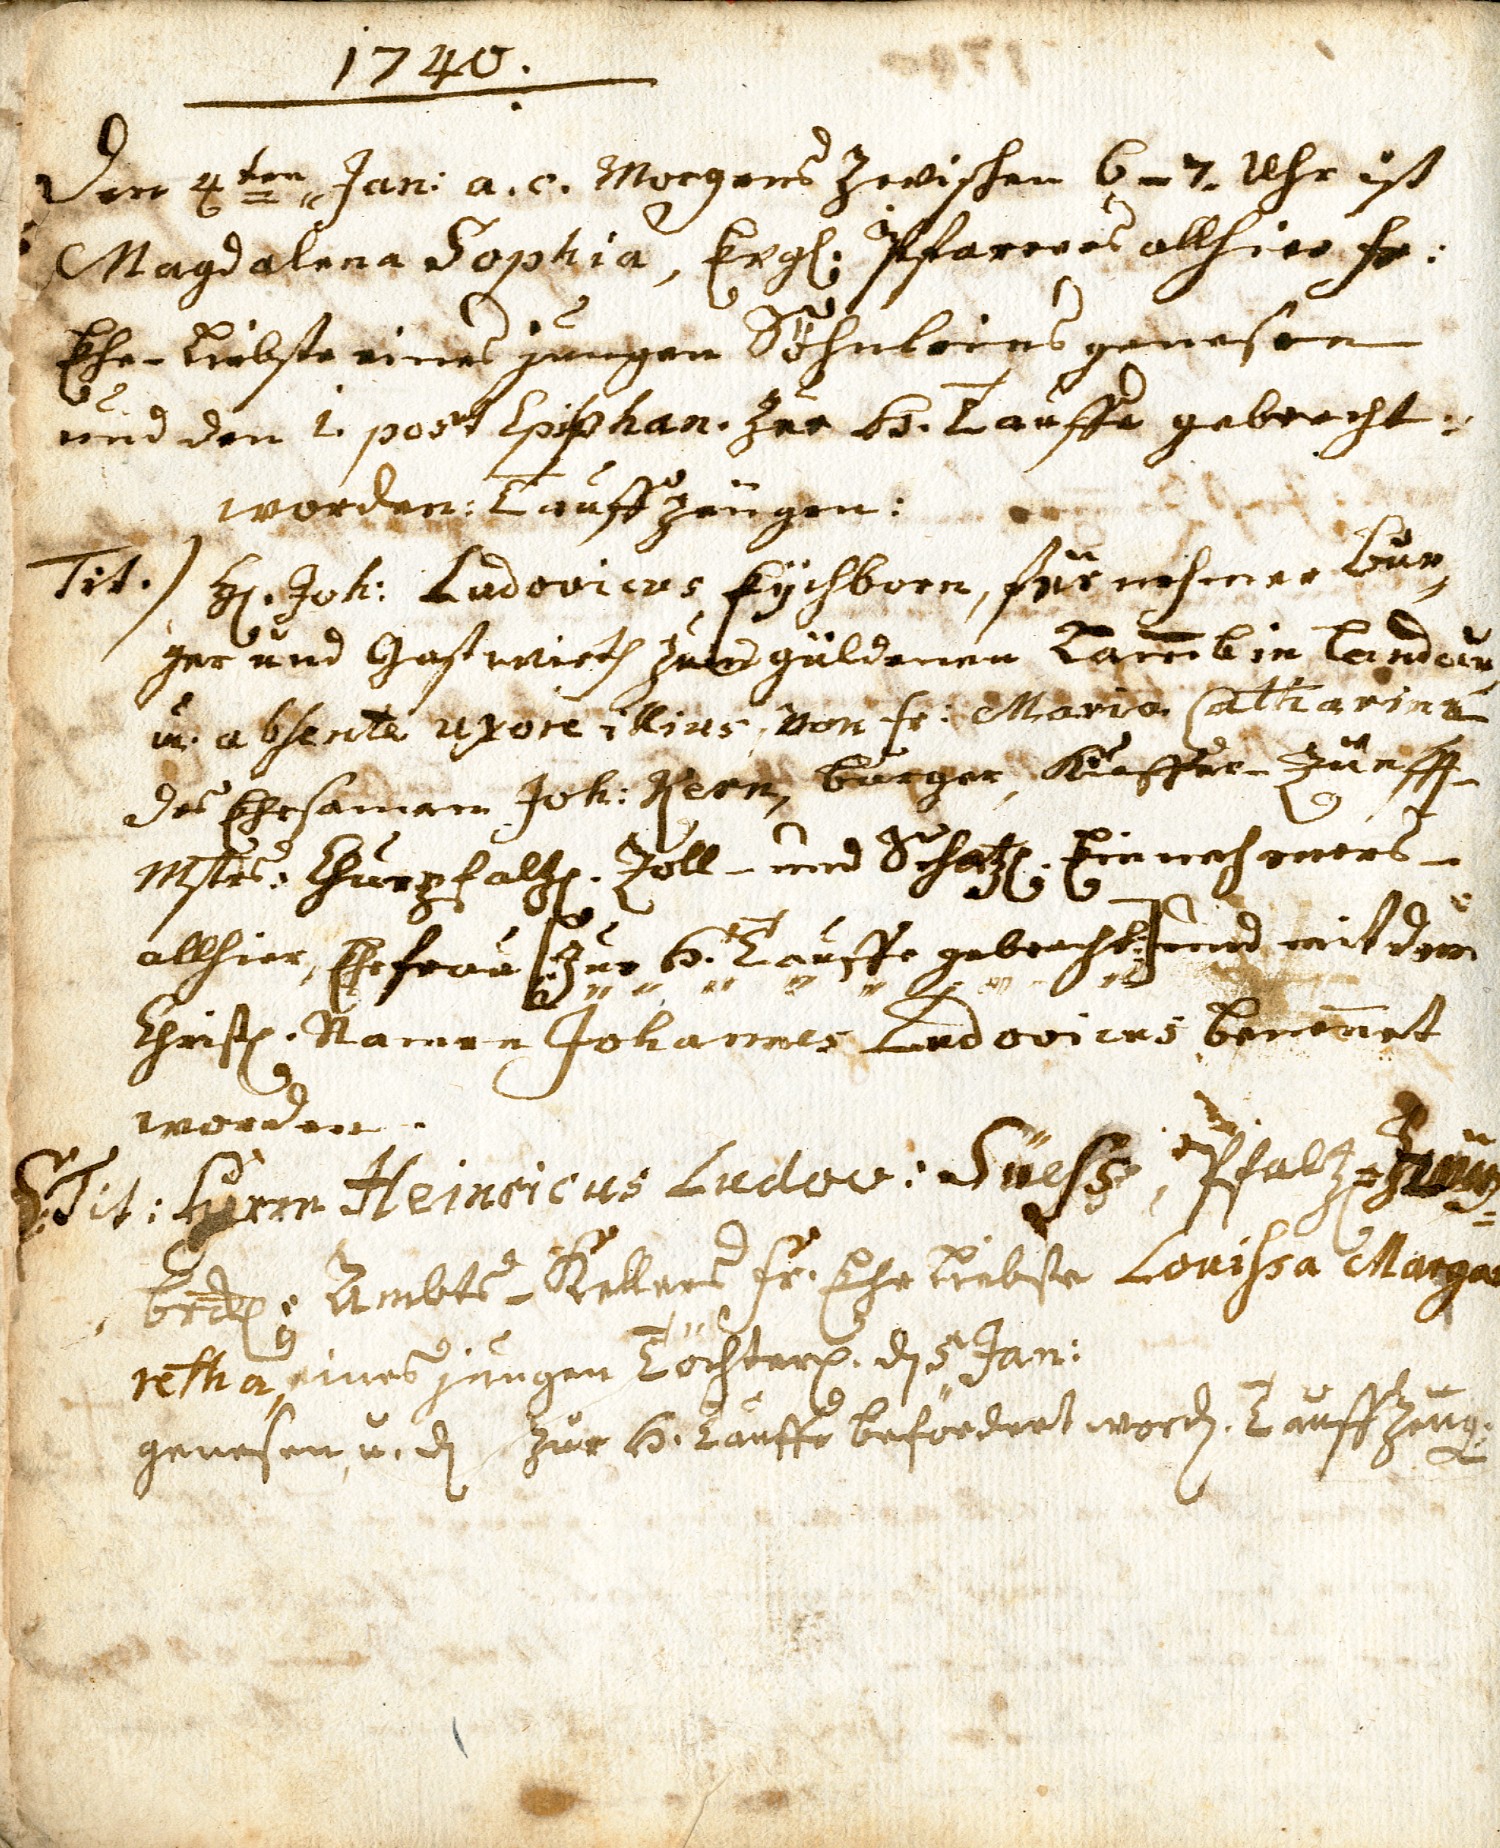 1740.
Den 4ten Jan: a. c. Morgens zwischen 6 - 7. Uhr ist
Magdalena Sophia, Evgl: Pfarrers allhier fr:
Ehe-Liebste eines jungen Söhnleins genesen
und den 1. post Epiphan. zur H. Tauffe gebracht
worden: Tauffzeugen:
Tit.) H. Joh: Ludovicus Eychborn, fürnehmer Bur,
ger und Gastwirth zum güldenen Lamb in Landau,
in absentia uxore illius, von fr: Maria Catharina
des Ehrsamen Joh: Kern, burger, Kieffer-Zunfft
Mstrs: Churpfaltz. Zoll- und Schatz. Einnehmers
allhier, Ehefrau [zur H. Tauffe gebracht] und mit dem
Christl. Namen Johannes Ludovicus benennet
worden.
Tit: Herrn Heinricus Ludov: Süess, Pfaltz-Zwey=
brck: Ambts-Kellers fr. Ehe Liebste Louissa Marga
retha, eines jungen Töchterl. d 5 Jan:
genesen, u. d zur H. Tauffe befördert word. Tauffzeug: